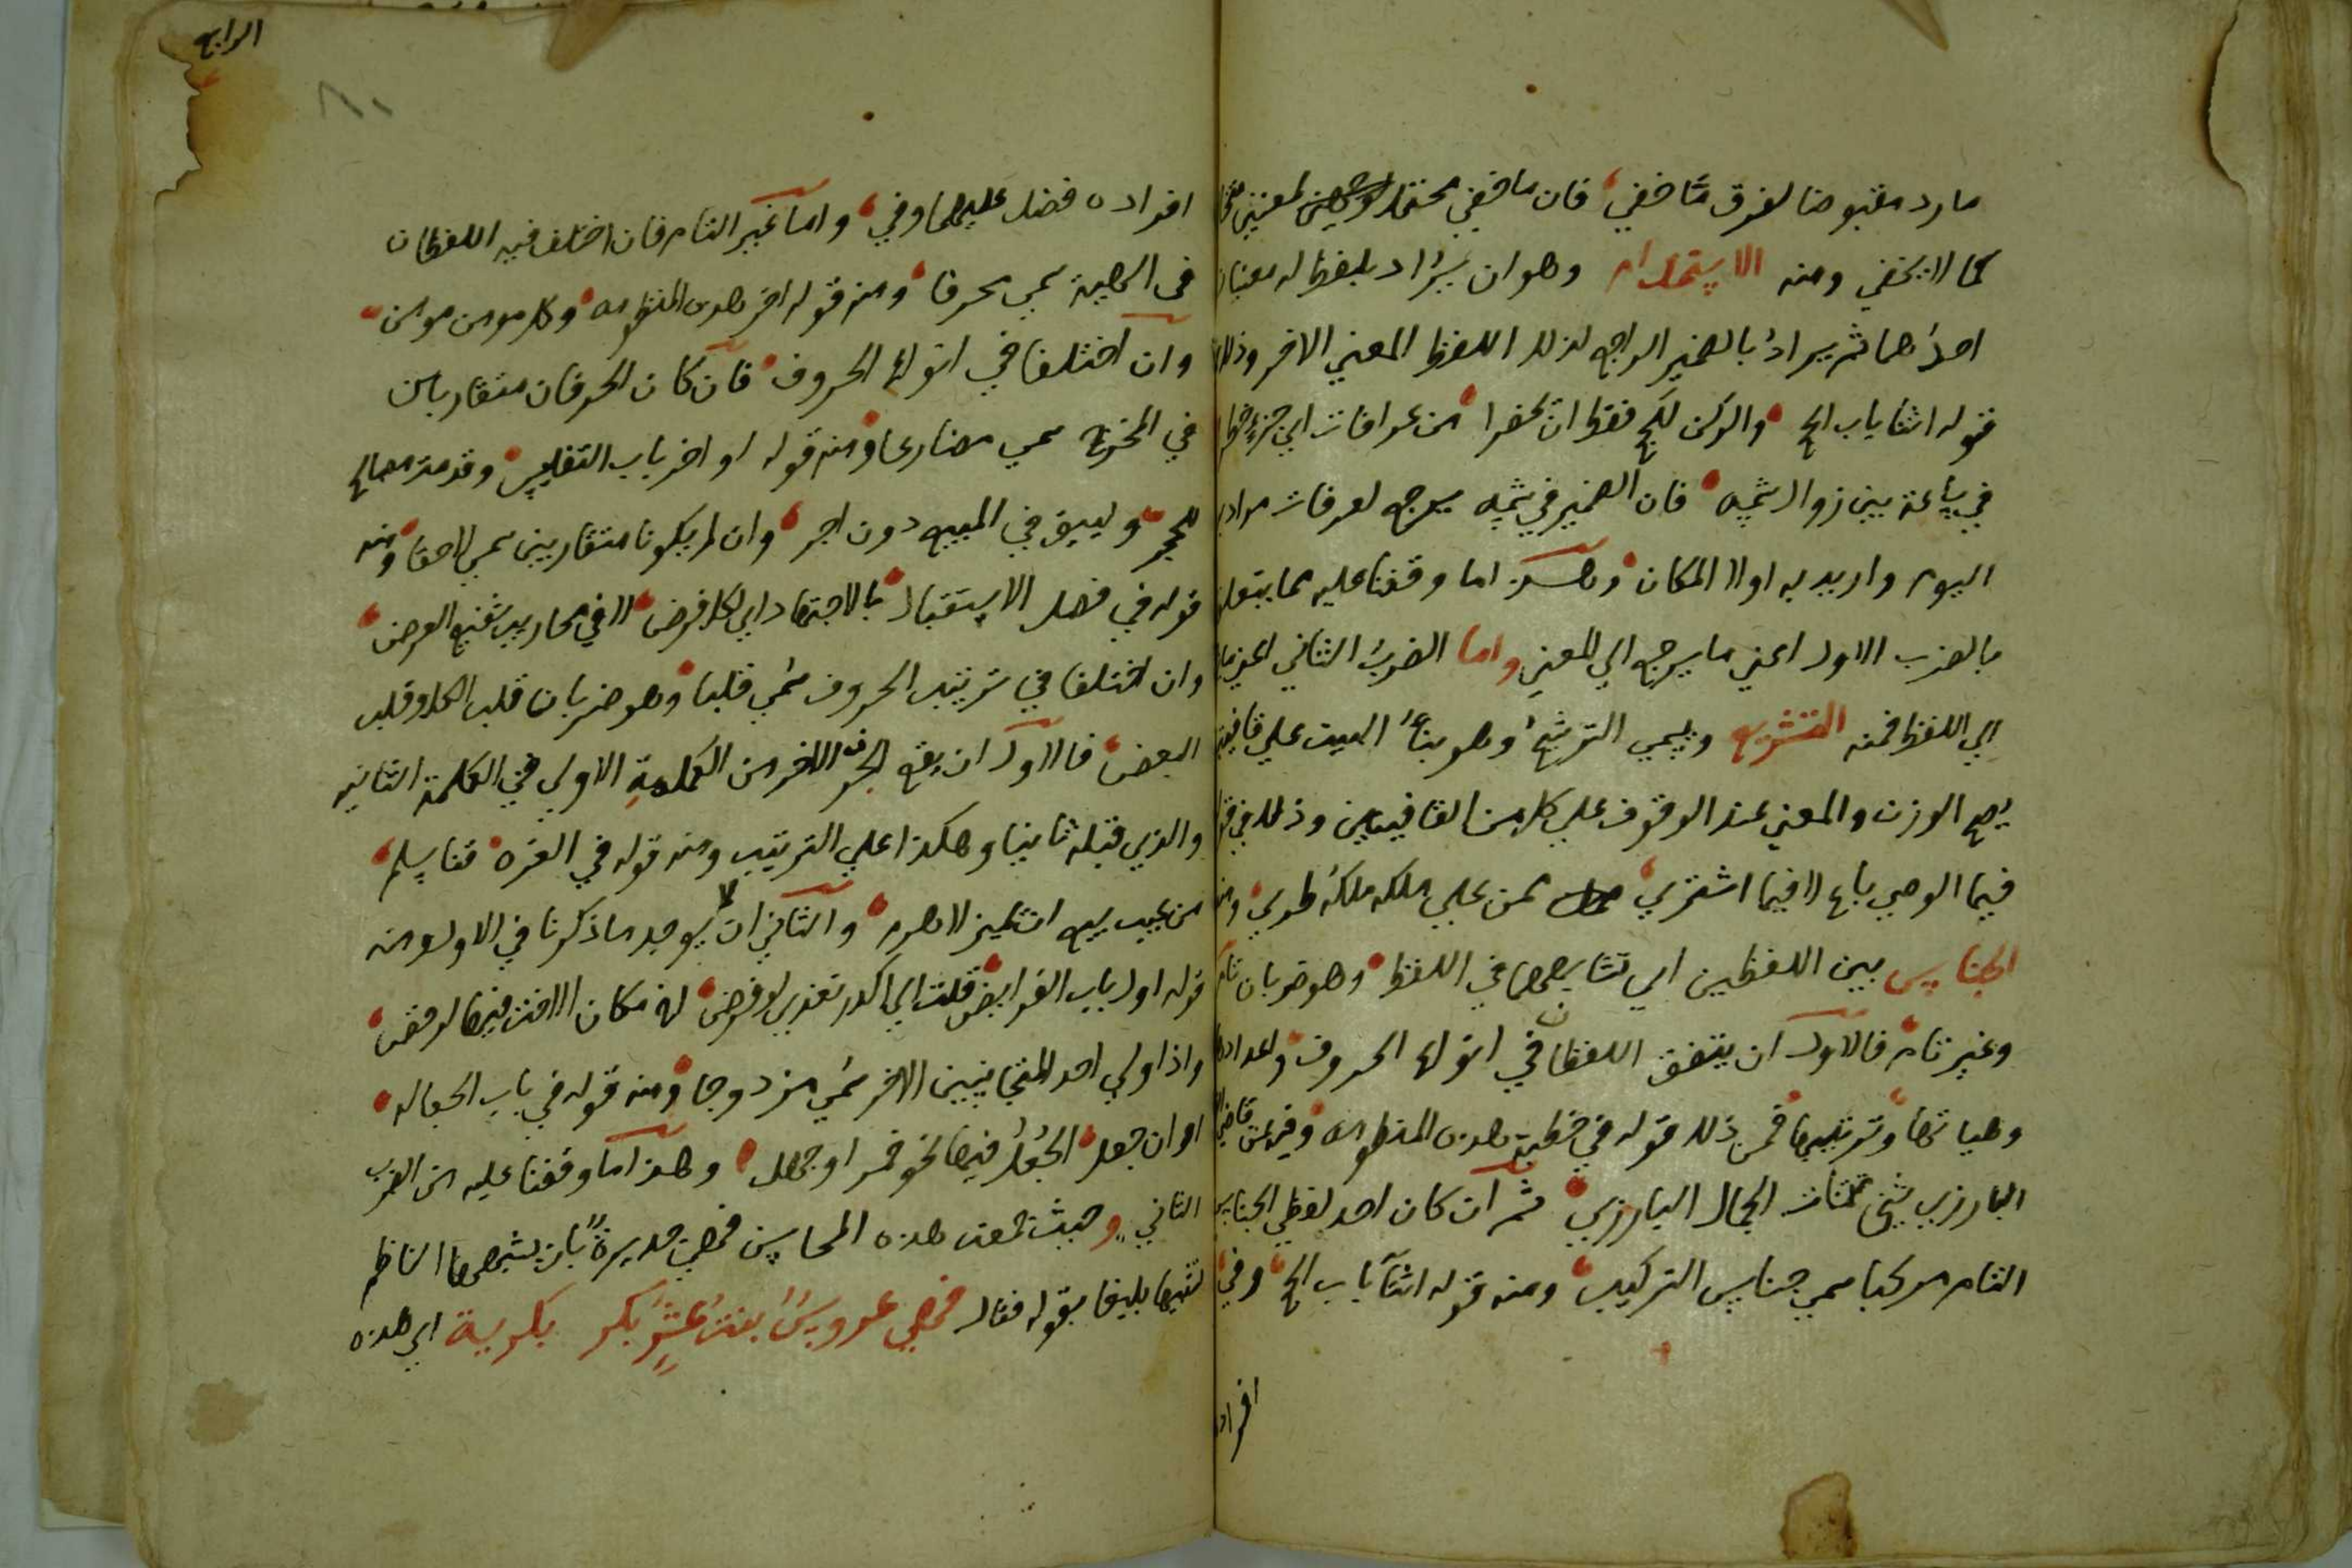 مارد مقبوضا لفرق ما خفي فان ما خفي محتمل لمعنيين
كما لا يخفي ومنه الاستخدام وهو ان يراد بلفظ له معنيان
احدهما ثم يراد بالضمير الراجع لذلك اللفظ المعني الاخر وذلك
قوله اثنا باب الحج والركن للحج فقط ان تحضرا من عرفات اي جزء
في ساعة بين زوال شمسه فان الضمير في شمسه يرجع لعرفات مرادا
اليوم واريد به اولا المكان وهذا ما وقفنا عليه مما يتعلق
بالضرب الاول اعني ما يرجع الي المعني واما الضرب الثاني اعني ما
الي اللفظ فمنه التشريع ويسمي التوشيح وهو بناء البيت علي قافيتين
يصح الوزن والمعني عند الوقوف علي كل من القافيتين وذلك في
فيما الوصي باع لا فيما اشتري ممن علي ملكه ملكه طري
الجناس بين اللفظين اي تشابههما في اللفظ وهو ضربان تام
وغير تام فالاول ان يتفق اللفظان في انواع الحروف واعدادها
وهياتها وترتيبها فمن ذلك قوله في خطبة هذه المنظومة
البارزي شيخي ثم ان كان احد لفظي الجناس
التام مركبا سمي جناس التركيب ومنه قوله اثنا باب الحج وفي
افراد
الرابع
٨٠
افراده فضل عليهما وفي واما غير التام فان اختلف فيه اللفظان
في الهيئة سمي محرفا ومنه قوله اخر هذه المنظومة وكل مومن مومن
وان اختلفا في انواع الحروف فان كان الحرفان متقاربان
في المخرج سمي مضارعا ومنه قوله اواخر باب التفليس
وليبق في المبيع دون اجر وان لم يكونا متقاربين سمي لاحقا ومنه
قوله في فصل الاستقبال بالاجتهاد اي لكل فرض لا في محاريب شفيع العرض
وان اختلفا في ترتيب الحروف سمي قلبا وهو ضربان قلب الكل وقلب
البعض فالاول ان يقع الحرف الاخر من الكلمة الاولي في الكلمة الثانية
والذي قبله ثانيا وهكذا علي الترتيب ومنه قوله في الغره قنا يسلم
من عيب بيع ان يميز لا هرم والثاني ان لا يوجد ما ذكرنا في الاول ومنه
قوله اول باب الفرايض
واذا ولي احد المتجانسين الاخر سمي مزدوجا ومنه قوله في باب الجعاله
او ان جعل الجعل فيها نحو خمر او جهل وهذا ما وقفنا عليه من الضرب
الثاني وحيث جمعت هذه المحاسن فهي جديرة بان يشبهها الناظم
تشبيها بليغا بقوله فقال فهي عروس بنت عشر بكر بكرية اي هذه